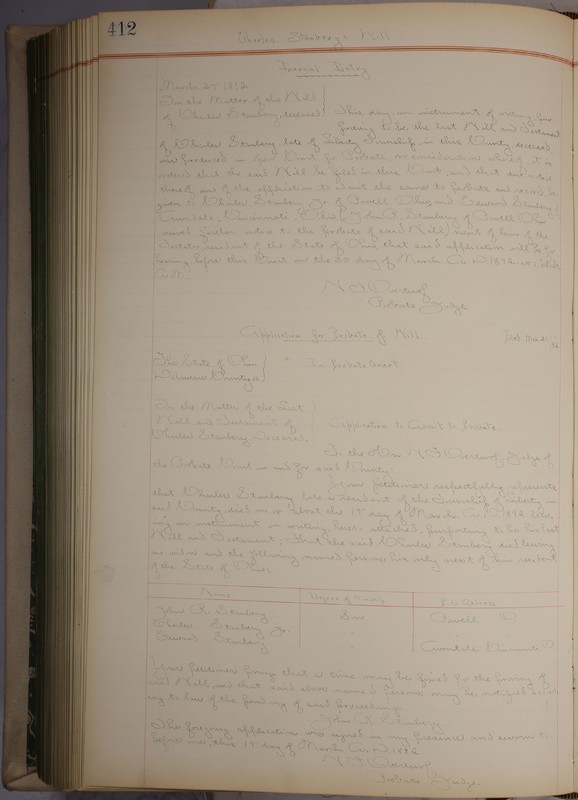 412
Charles Stanbery's Will
Journal Entry
March 21 1892
In the Matter of the Will
of Charles Stanbery, deceased
This day, an instrument of writing pur
porting to be the last Will and Testament
of Charles Stanbery late of Liberty Township in this County, deceased,
was produced in open Court for Probate on consideration whereof, it is
ordered that the said Will be filed in this Court, and that due notice
thereof, and of the application to admit the same to Probate and record, be
given to Charles Stanbery Jr. of Powell Ohio, and Edward Stanbery,
Avondale, Cincinnati, Ohio, John R. Stanbery of Powell Ohio
of said Will, next of kin of the
Testator resident of the State of Ohio, that said application will be for
hearing before this Court on the day of March A.D. 1892 at 1 o'clock
N F Overturf
Probate Judge
Application for Probate of Will.
The State of Ohio
Delaware County ss
In Probate Court
In the Matter of the Last
Will and Testament of
Charles Stanbery, Deceased.
Application to Admit to Probate.
To the Hon N F Overturf, Judge of
the Probate Court in and for said County:
Your Petitioner respectfully represents
that Charles Stanbery late a resident of the Township of Liberty in
said County, died on or about the 1st day of March A.D. 1892 leav
ing an instrument in writing, here attached, purporting to be his last
Will and Testament; That the said Charles Stanbery died leaving
no widow and the following named persons his only next of kin resident
of the State of Ohio;
Name
Degree of Kindred
P.O. Address
John R. Stanbery
Son
Powell O
Charles Stanbery Jr.
"
"
Edward Stanbery
"
Avondale Cincinnati O
Your Petitioner prays that a time may be fixed for the proving of
said Will, and that said above named persons may be notified accord
ing to law of the pendency of said proceedings.
John R Stanbery
The foregoing application was signed in my presence and sworn to
before me, this day of March A.D. 1892
N F Overturf
Probate Judge.